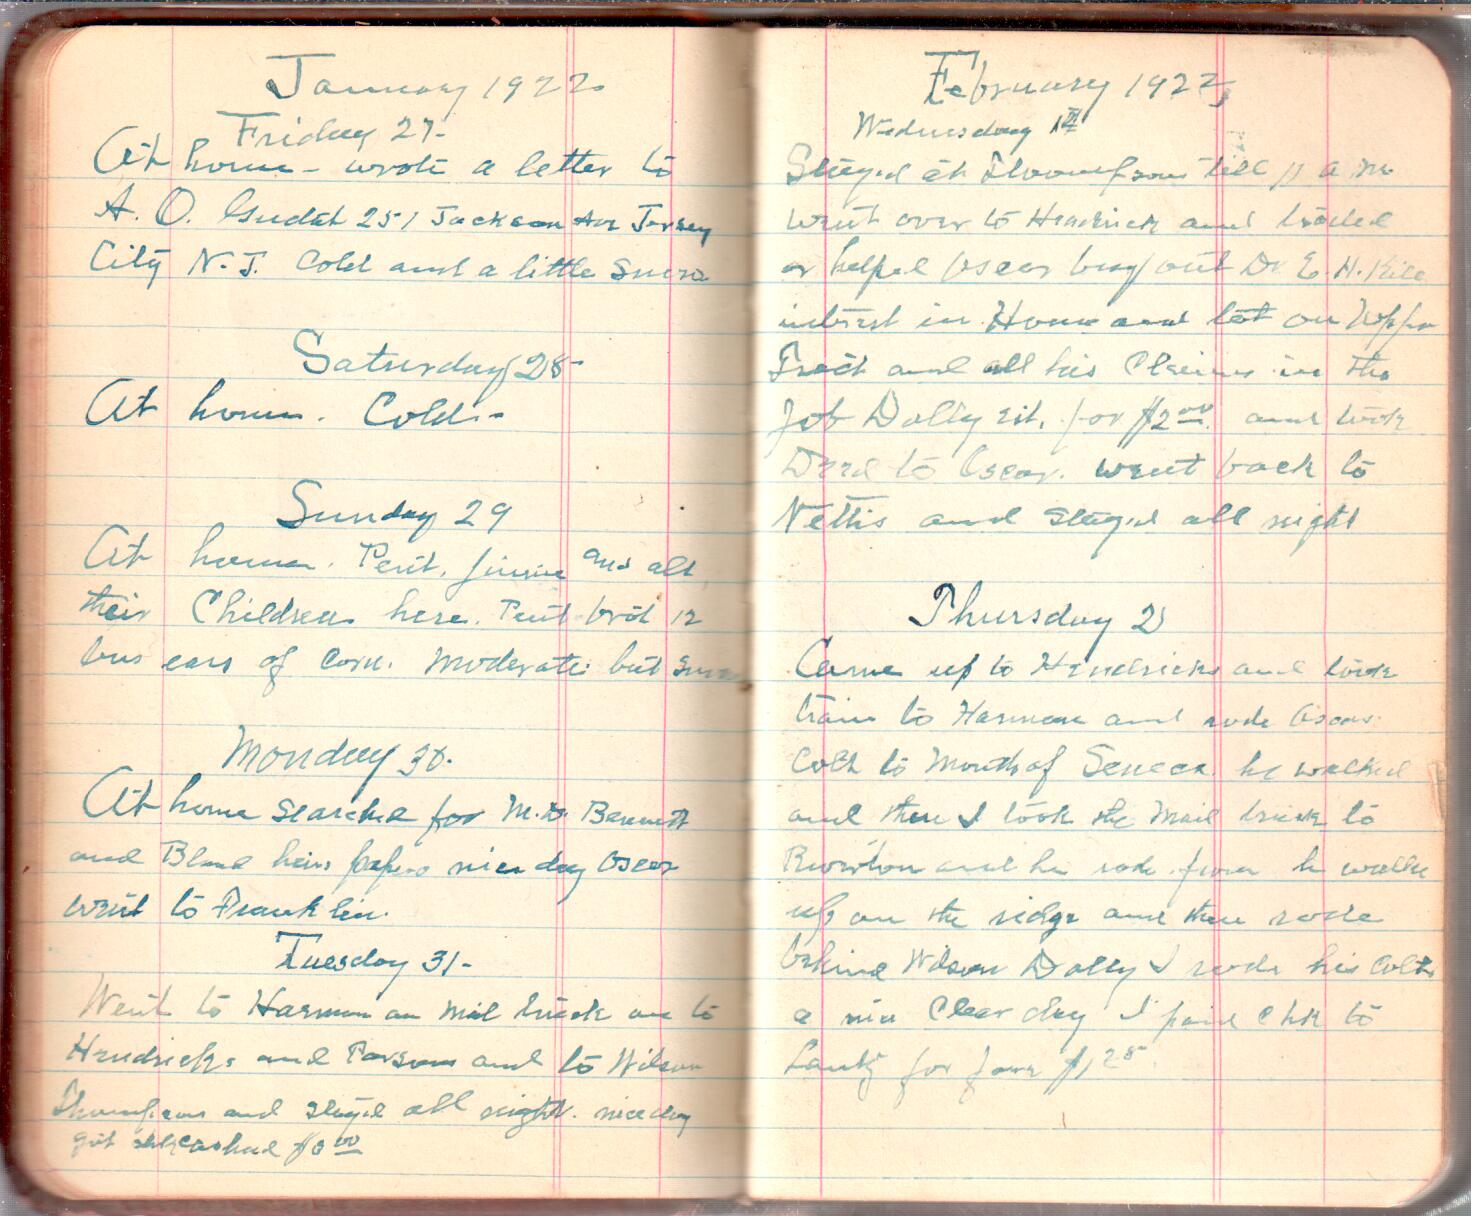 January 1922
Friday 27-
At home - wrote a letter to
A. O. Gudat 251 Jackson Ave Jersey
City N.J. Cold and a little Snow
Saturday 28-
At home. Cold-
Sunday 29
At home. and all
their Children here. brot 12
bus ears of corn. moderate but
Monday 30.
At home searched for M.D. Bennett
and Bland heirs papers nice day Oscar
went to Franklin.
Tuesday 31-
Went to Harman on mail truck on to
Hendricks and Parsons and to Wilson
Thompsons and stayed all night. nice day
got cashed
February 1922
Wednesday 1st
Stayed at Thompsons till 11 a m
went over to Hendricks and traded
or helped Oscar buy out Dr E. H.
interest in House and lot on
Tract and all his Claims in the
Job Dolly est. for $2 00 and took
Deed to Oscar. went back to
Netties and stayed all night
Thursday 2
Came up to Hendricks and took
train to Harmon and rode Oscars
Colt to Mouth of Seneca. he walked
and then I took the Mail truck to
and he rode. he
up on the ridge and then rode
behind Wilson Dolly I rode his Colt
a nice Clear day I paid to
Lantz for fare $1 25